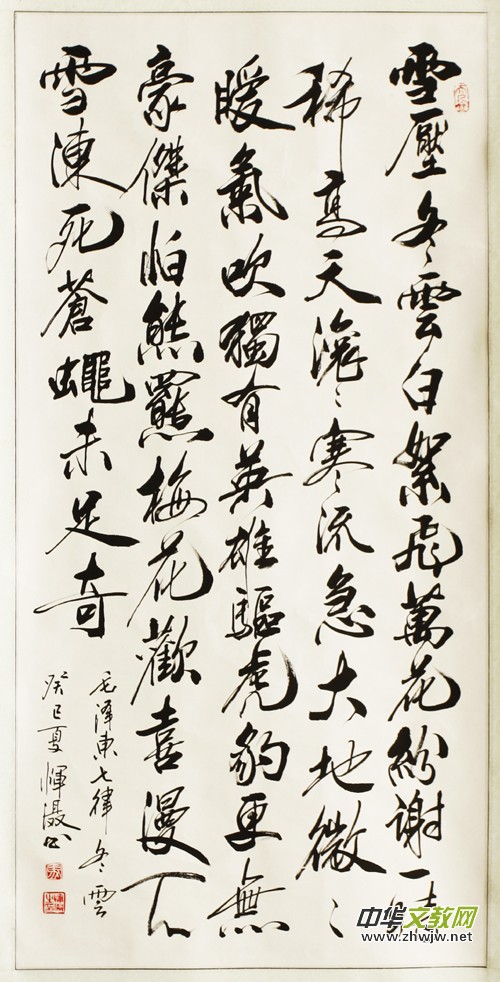 雪壓冬雲白絮飛萬花紛謝一時
稀高天滾〻寒流急大地微〻
暖氣吹獨有英雄驅虎豹更無
豪傑怕熊羆梅花歡喜漫天
雪凍死蒼蠅未足奇
毛泽東七律冬雲
癸巳夏
中华文教网
www.zhwjw.net